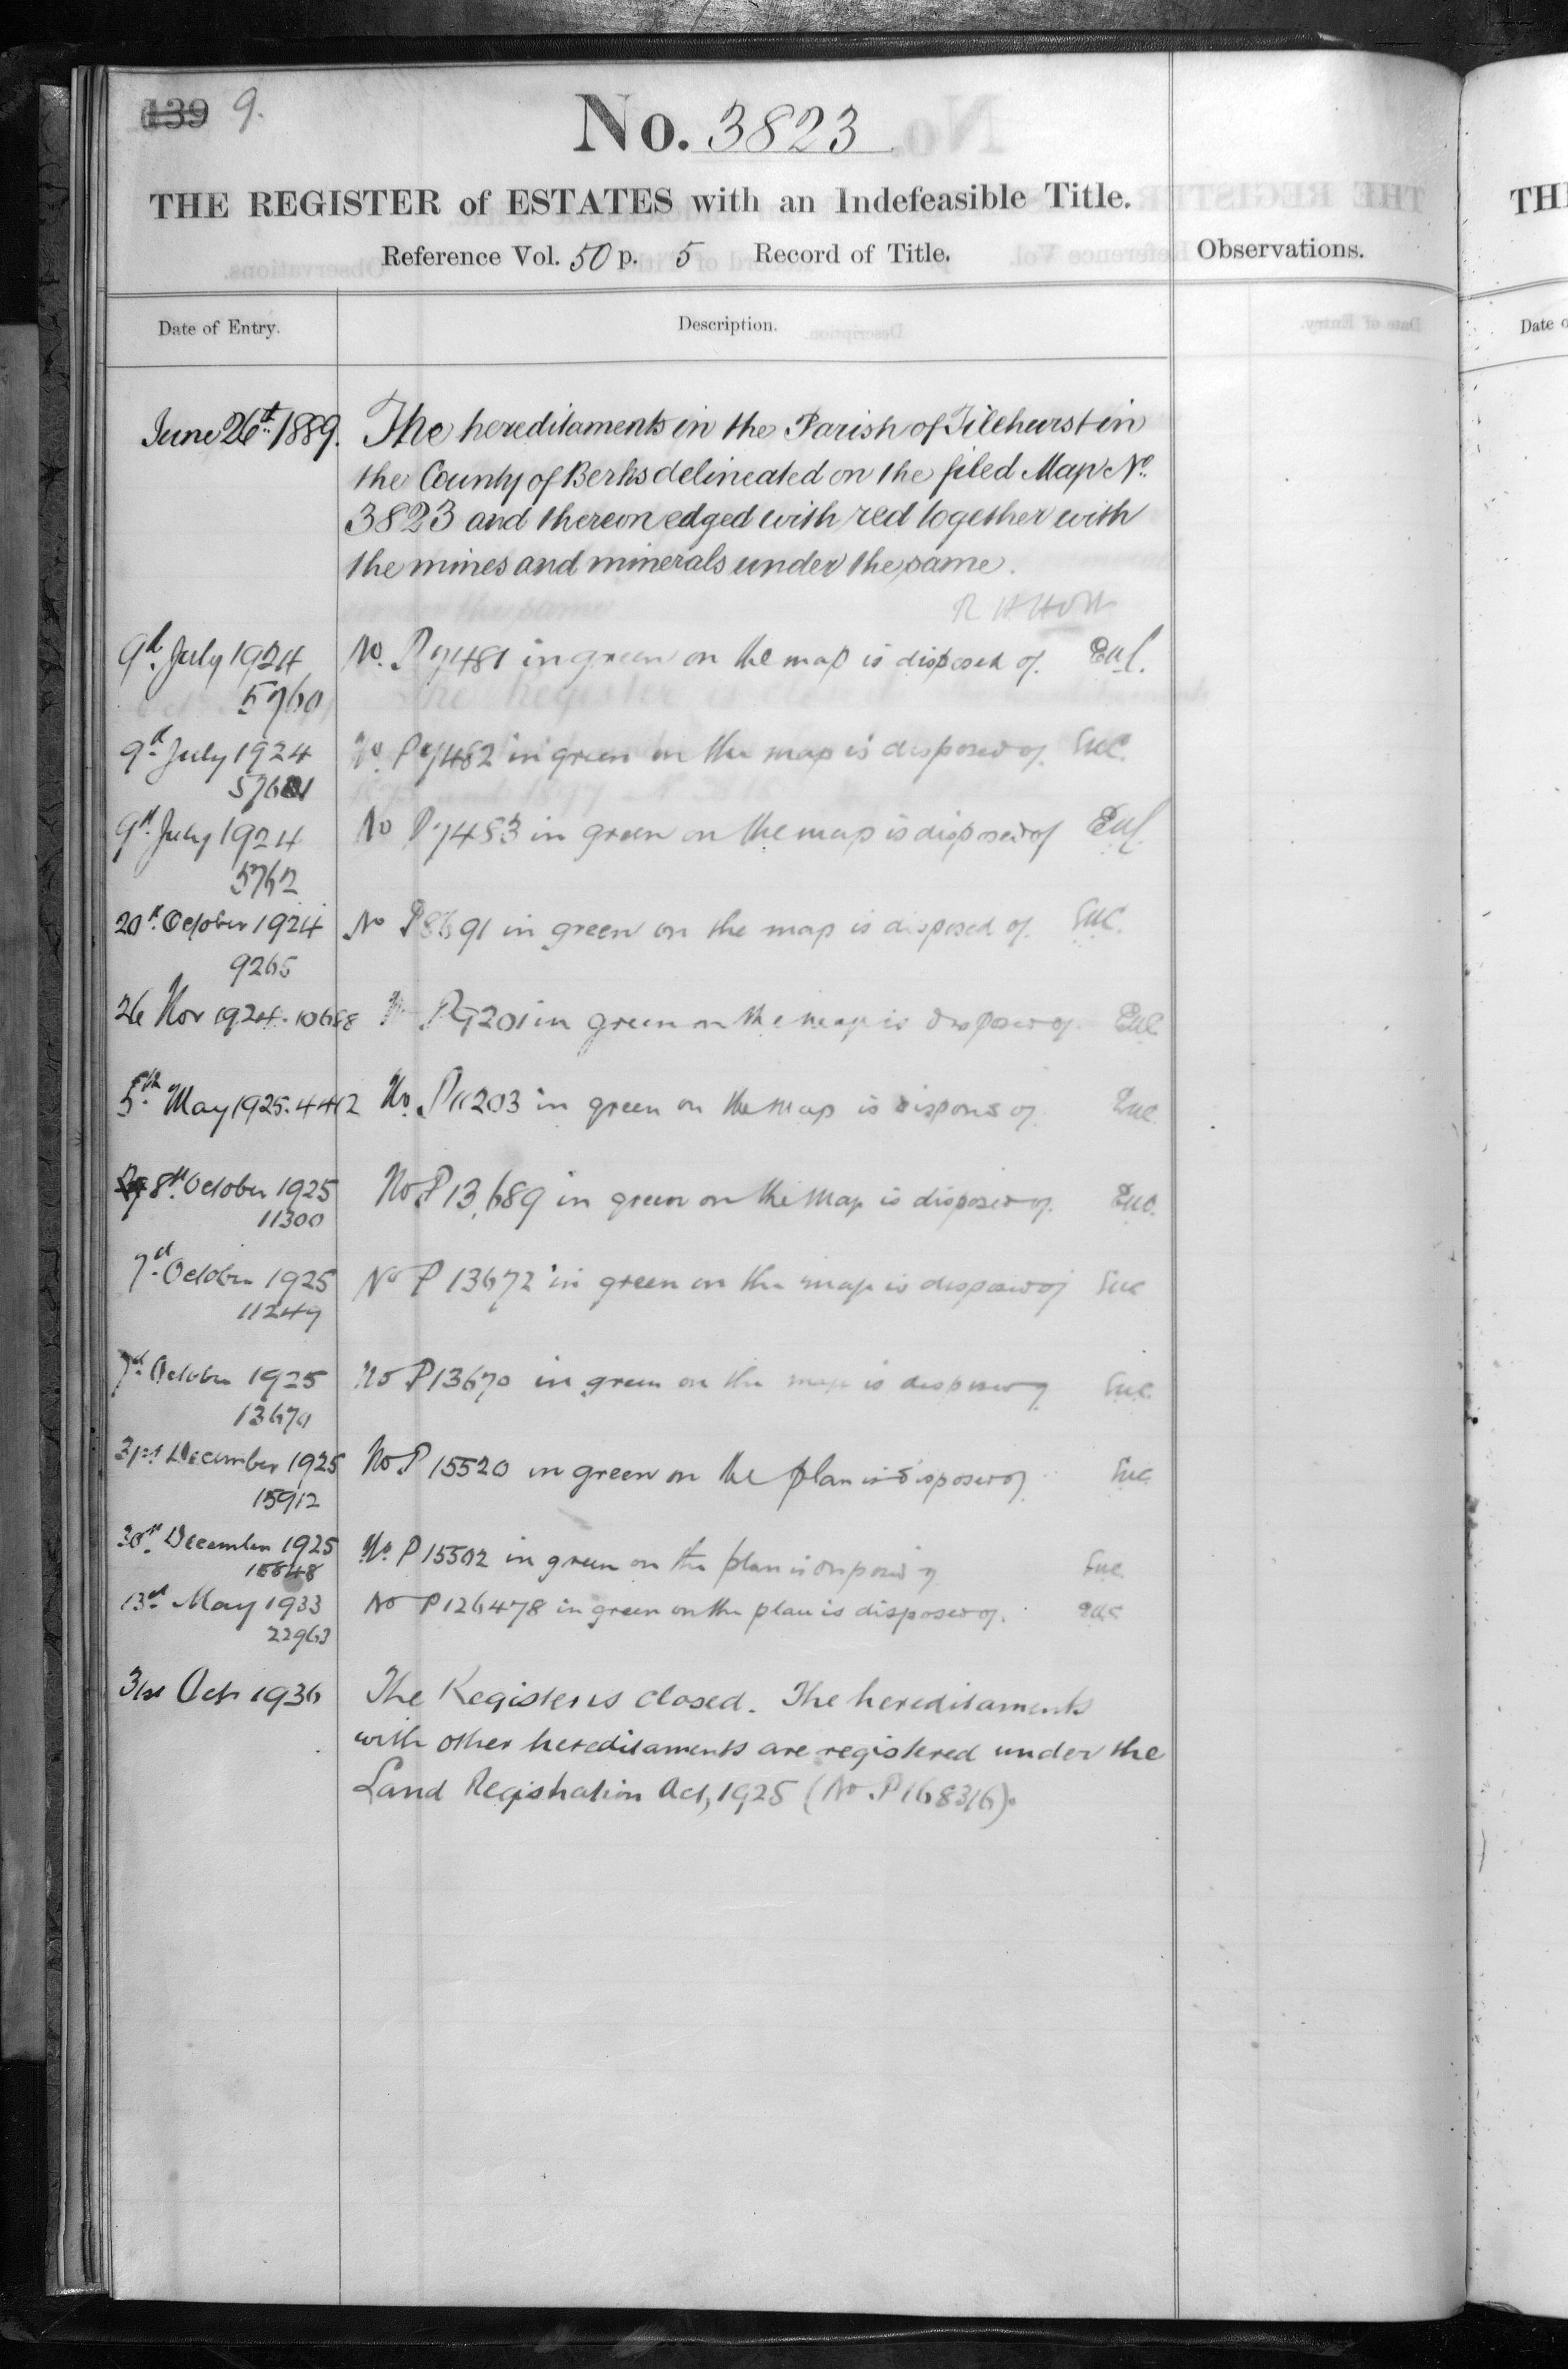 139 9.
No. 3823
THE REGISTER of ESTATES with an Indefeasible Title.
Reference Vol. 50 p. 5 Record of Title.
Observations.
Date of Entry.
Description.
June 26th 1889. The hereditaments in the Parish of Tilehurst in
the County of Berks delineated on the filed Map No.
3823 and thereon edged with red together with
the mines and minerals under the same.
R H Holt
9th July 1924 No. P 7481 in green on the map is disposed of.
5760
9th July 1924 No. P 7482 in green on the map is disposed of.
5761
9th July 1924 No P 7483 in green on the map is disposed of
5762
20th October 1924 No P 8691 in green on the map is disposed of.
9265
26 Nov 1924. 10688 No P9201 in green on the map is disposed of.
5th May 1925. 4412 No. P11203 in green on the map is disposed of
8th October 1925 No P 13,689 in green on the map is disposed of.
11300
7th October 1925 No P 13672 in green on the map is disposed of
11247
7th October 1925 No P 13670 in green on the map is disposed of
13670
31st December 1925 No P 15520 in green on the plan is disposed of
15912
30th December 1925 No. P 15502 in green on the plan is disposed of
15848
13th May 1933 No P 126478 in green on the plan is disposed of.
22963
31st Oct 1936 The Register is closed. The hereditaments
with other hereditaments are registered under the
Land Registration Act, 1925 (No. P168316).
TH
Date o